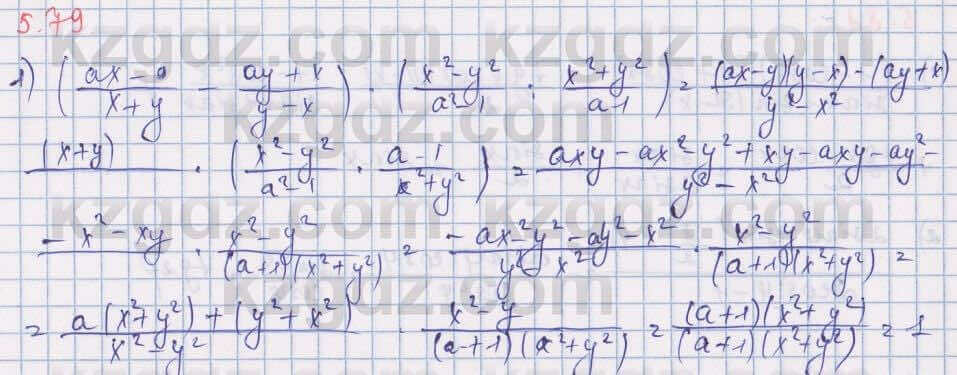 5.79
1) ((ax-a)/(x+y) - (ay+x)/(y-x)) · ((x²-y²)/(a²-1) : (x²+y²)/(a-1)) = ((ax-y)(y-x)-(ay+x)/(y²-x²)
(x+y)/ · ((x²-y²)/(a²-1) · (a-1)/(x²+y²)) = (axy-ax²-y²+xy-axy-ay²-)/(y²-x²)
-x²-xy/ · (x²-y²)/((a+1)(x²+y²)) = (-ax²-y²-ay²-x²)/(y² x²) · (x²-y²)/((a+1)(x²+y²)) =
= (a(x²+y²)+(y²+x²))/(x²-y²) · (x²-y)/((a+1)(a²+y²)) = ((a+1)(x²+y²))/((a+1)(x²+y²)) = 1
kzgdz.com